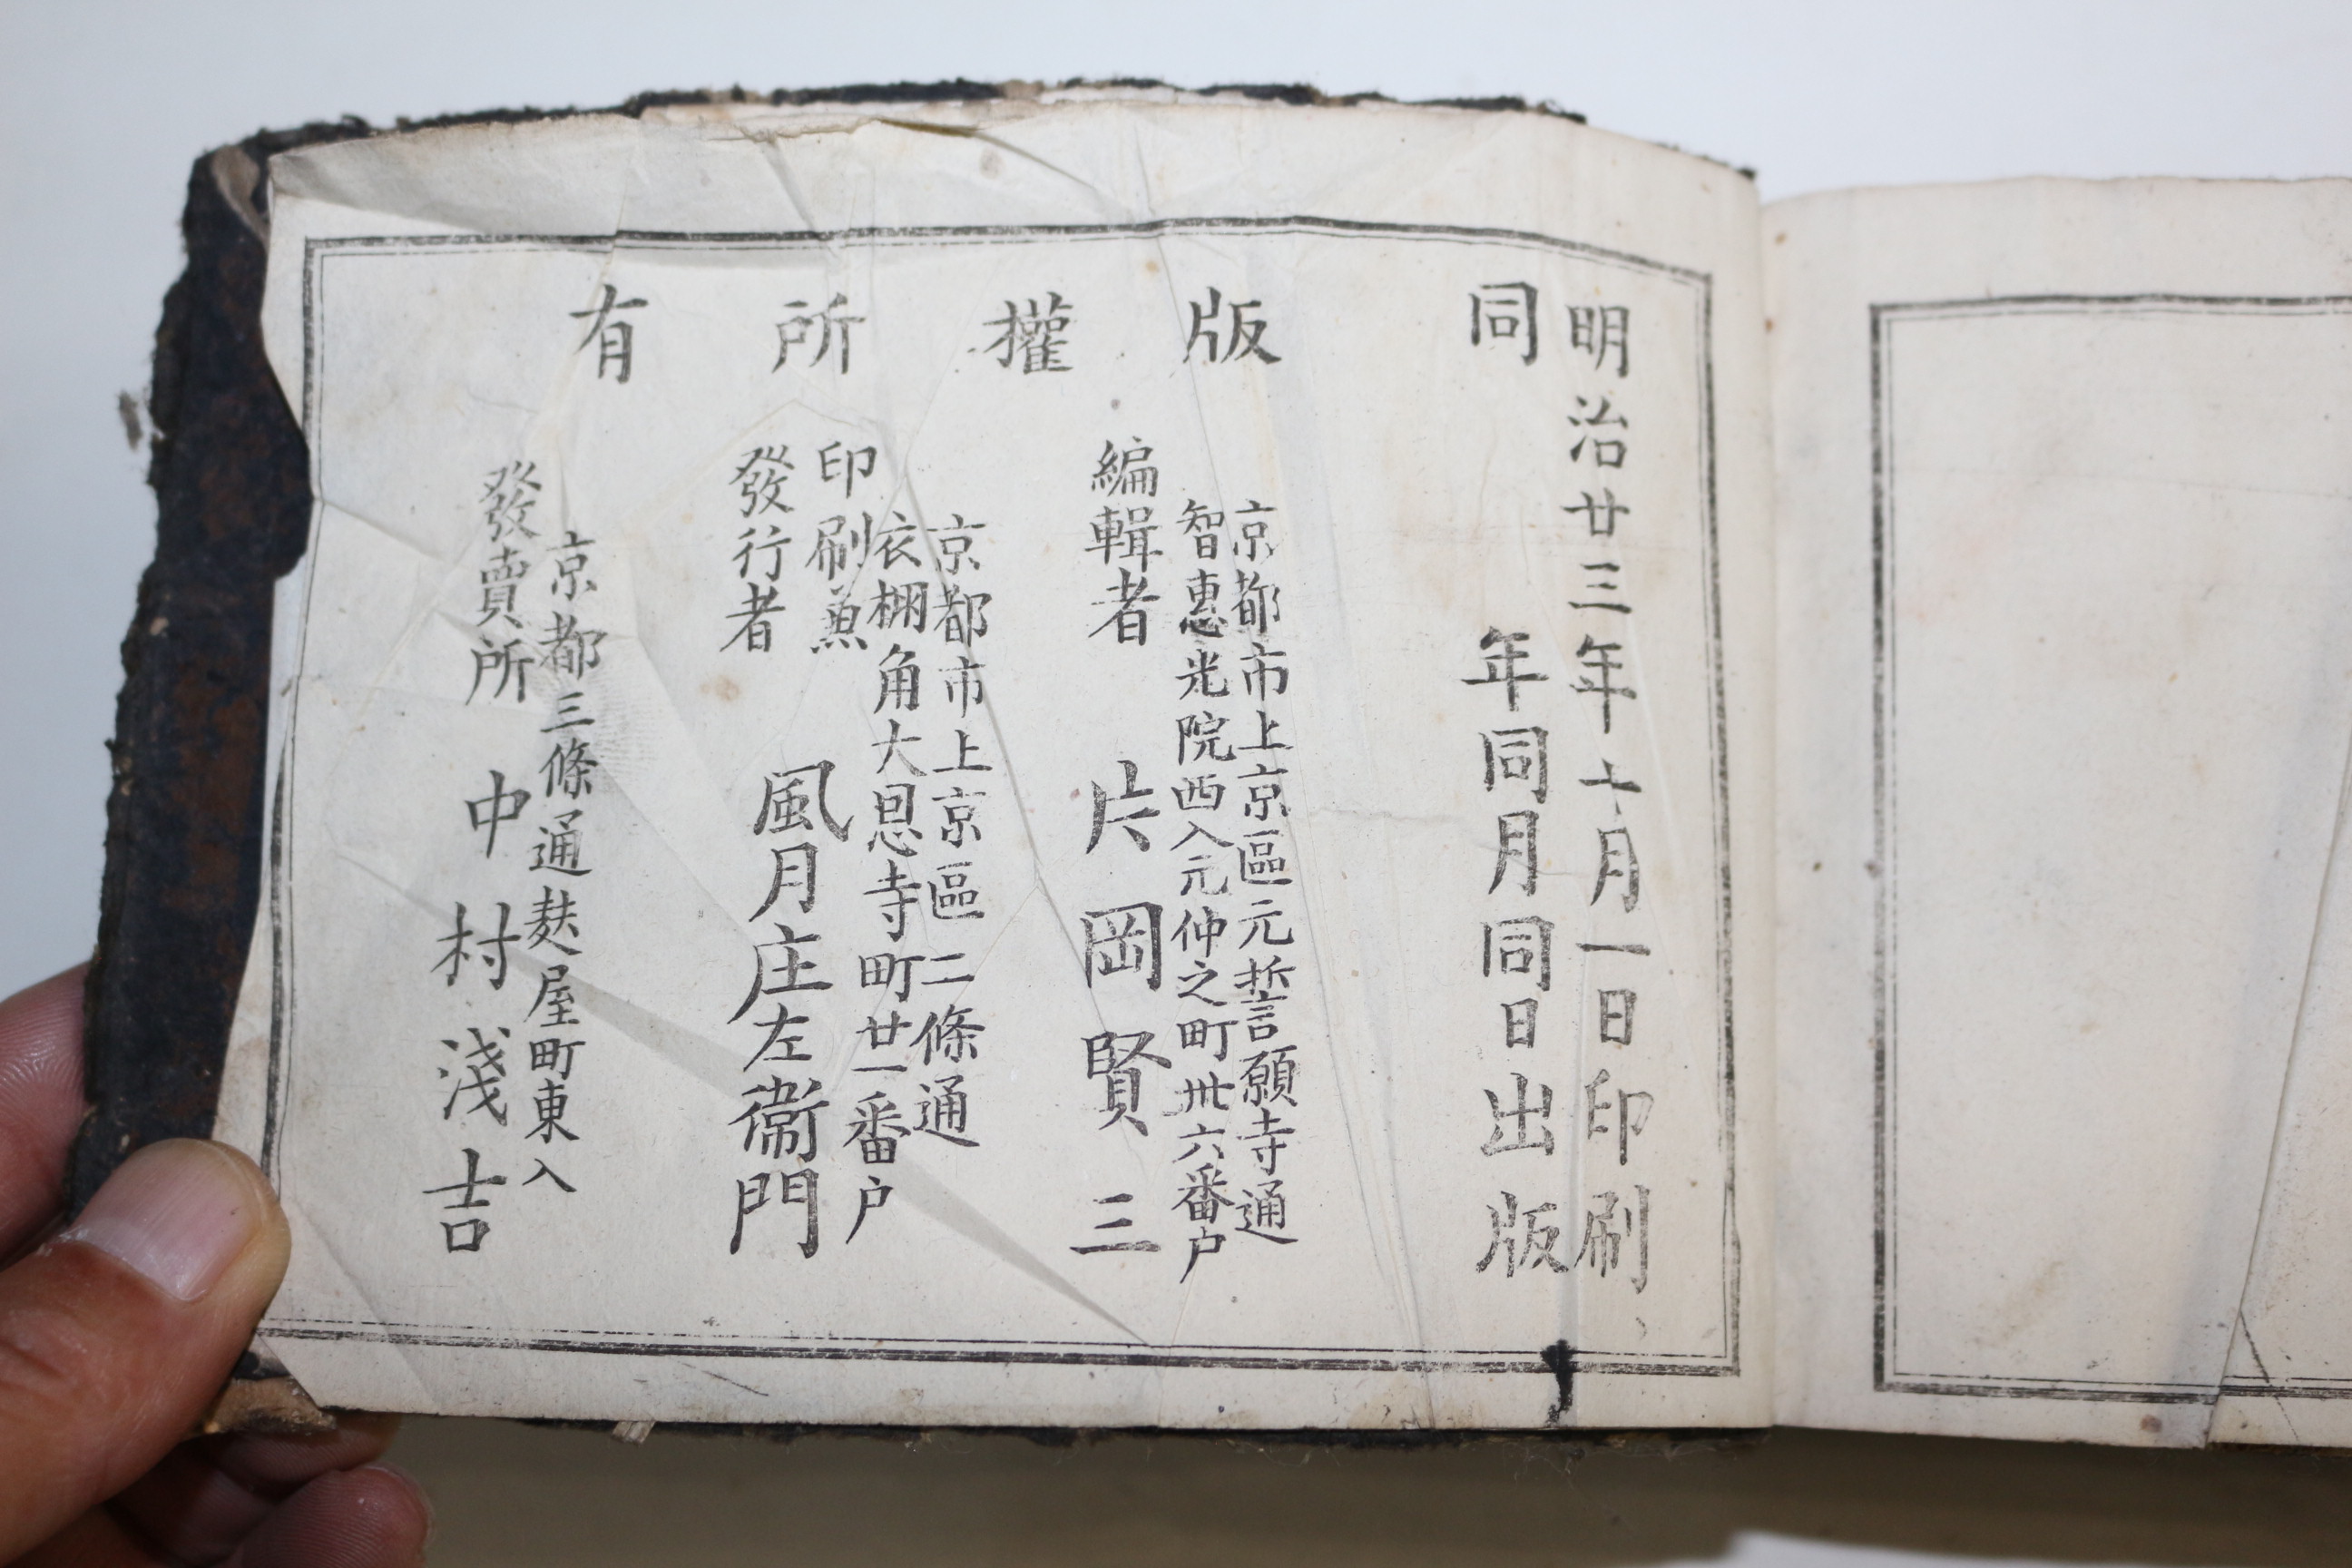 明治廿三年十月一日印刷
同年同月同日出版
版權所有
京都市上京區元誓願寺通
智惠光院西入元仲之町卅六番户
編輯者 片岡賢三
京都市上京區二條通
衣棚角大恩寺町廿一番户
印刷兼
發行者 風月庄左衞門
京都三條通麸屋町東入
發賣所 中村淺吉